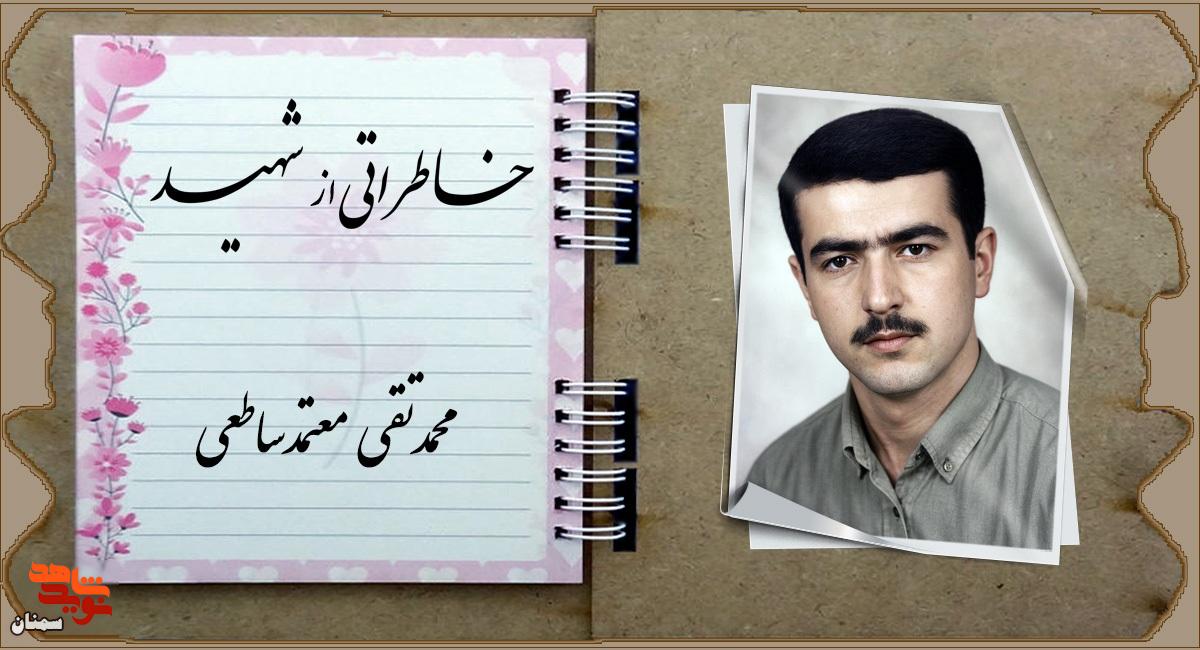 خاطراتی از شهید
محمدتقی معتمدساطعی
نوید شاهد
سمنان